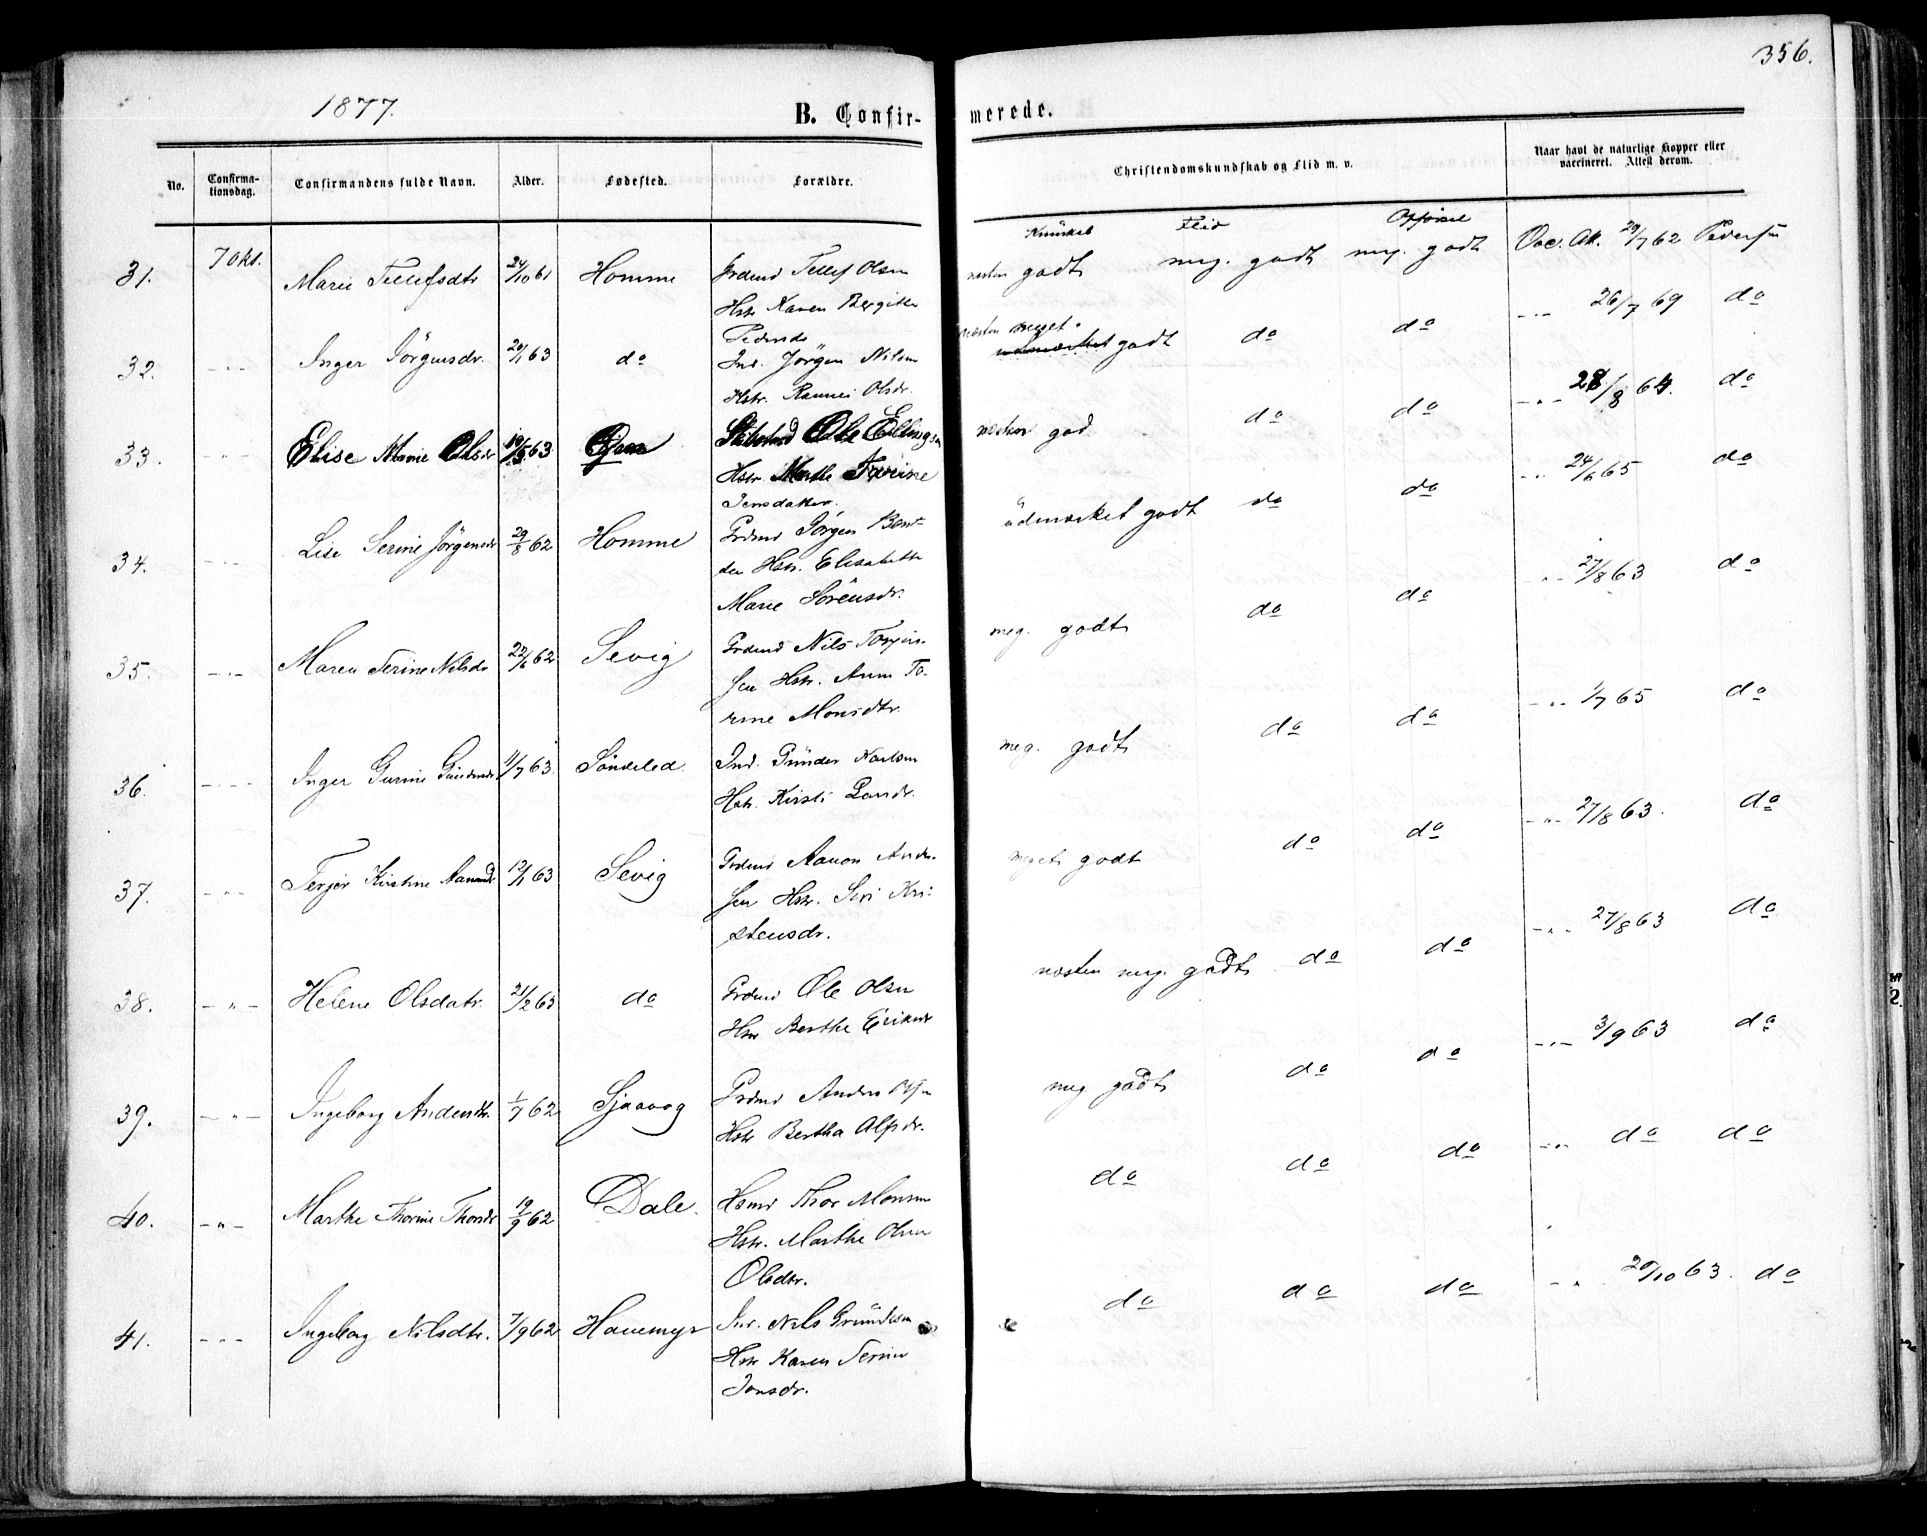 356.
1877.
B. Confir-
merede.
No.
Confirma-
tionsdag.
Confirmandens fulde Navn.
Alder.
Fødested.
Forældre.
Christendomskundskab og Flid m. v.
Naar havt de naturlige Kopper eller
vaccineret. Attest derom.
Kundskab Flid Opførsel
31. 7 okt. Marie Tellefsdtr 24/10 61 Homme Grdmd Tellef Olsen
Hstr Karen Bergitte
Pedersdr
næsten godt meg. godt meg. godt Vac. Att. 20/7 62 Pedersen
32. - " - Inger Jörgensdr. 20/1 63 do Ind. Jörgen Nilsen
Hstr. Olsdr.
næsten meget godt do do - " - 26/7 69 do
33. - " - Elise Marie Olsdr 10/5 63 Ole Ellingsen
Hstr. Marthe
Jensdatter.
næsten god do do - " - 28/8 64. do
34. - " - Lise Serine Jörgensdr 29/8 62 Homme Grdmd Jörgen Bent-
sen Hstr. Elisabeth
Marie Sörensdr.
üdmærket godt do do - " - 24/6 65 do
35. - " - Maren Terine Nilsdr 22/6 62 Sevig Grdmd Nils Torjus-
sen Hstr. Anne To-
rine Monsdtr.
meg. godt do do - " - 27/8 63 do
36. - " - Inger Gurine Gündersdr 11/7 63 Söndeled Ind. Günder Karlsen
Hstr. Kirsti
meg. godt do do - " - 1/7 65 do
37. - " - Terjer Kirstine Aanonsd 12/1 63 Sevig Grdmd Aanon Ander-
sen Hstr. Siri Kri-
stensdr.
meget godt do do - " - 27/8 63. do
38. - " - Helene Olsdatr. 21/2 63 do Grdmd Ole Olsen
Hstr Berthe Eriksdr
næsten meg. godt do do - " - 27/8 63 do
39. - " - Ingeborg Andersdtr. 1/7 62 Sjaavog Grdmd Anders
Hstr Bertha Alfsdr.
meg godt do do - " - 3/9 63 do
40. - " - Marthe Thorine Thorsdr 19/9 62 Dale. Hsmd Thor Monsen
Hstr. Marthe Olea
Olsdtr.
do do do - " - do do
41. - " - Ingeborg Nilsdtr. 7/9 62 Havemyr Ind. Nils Gründesen
Hstr Karen Terine
Jonsdr.
do do do - " - 20/10 63. do